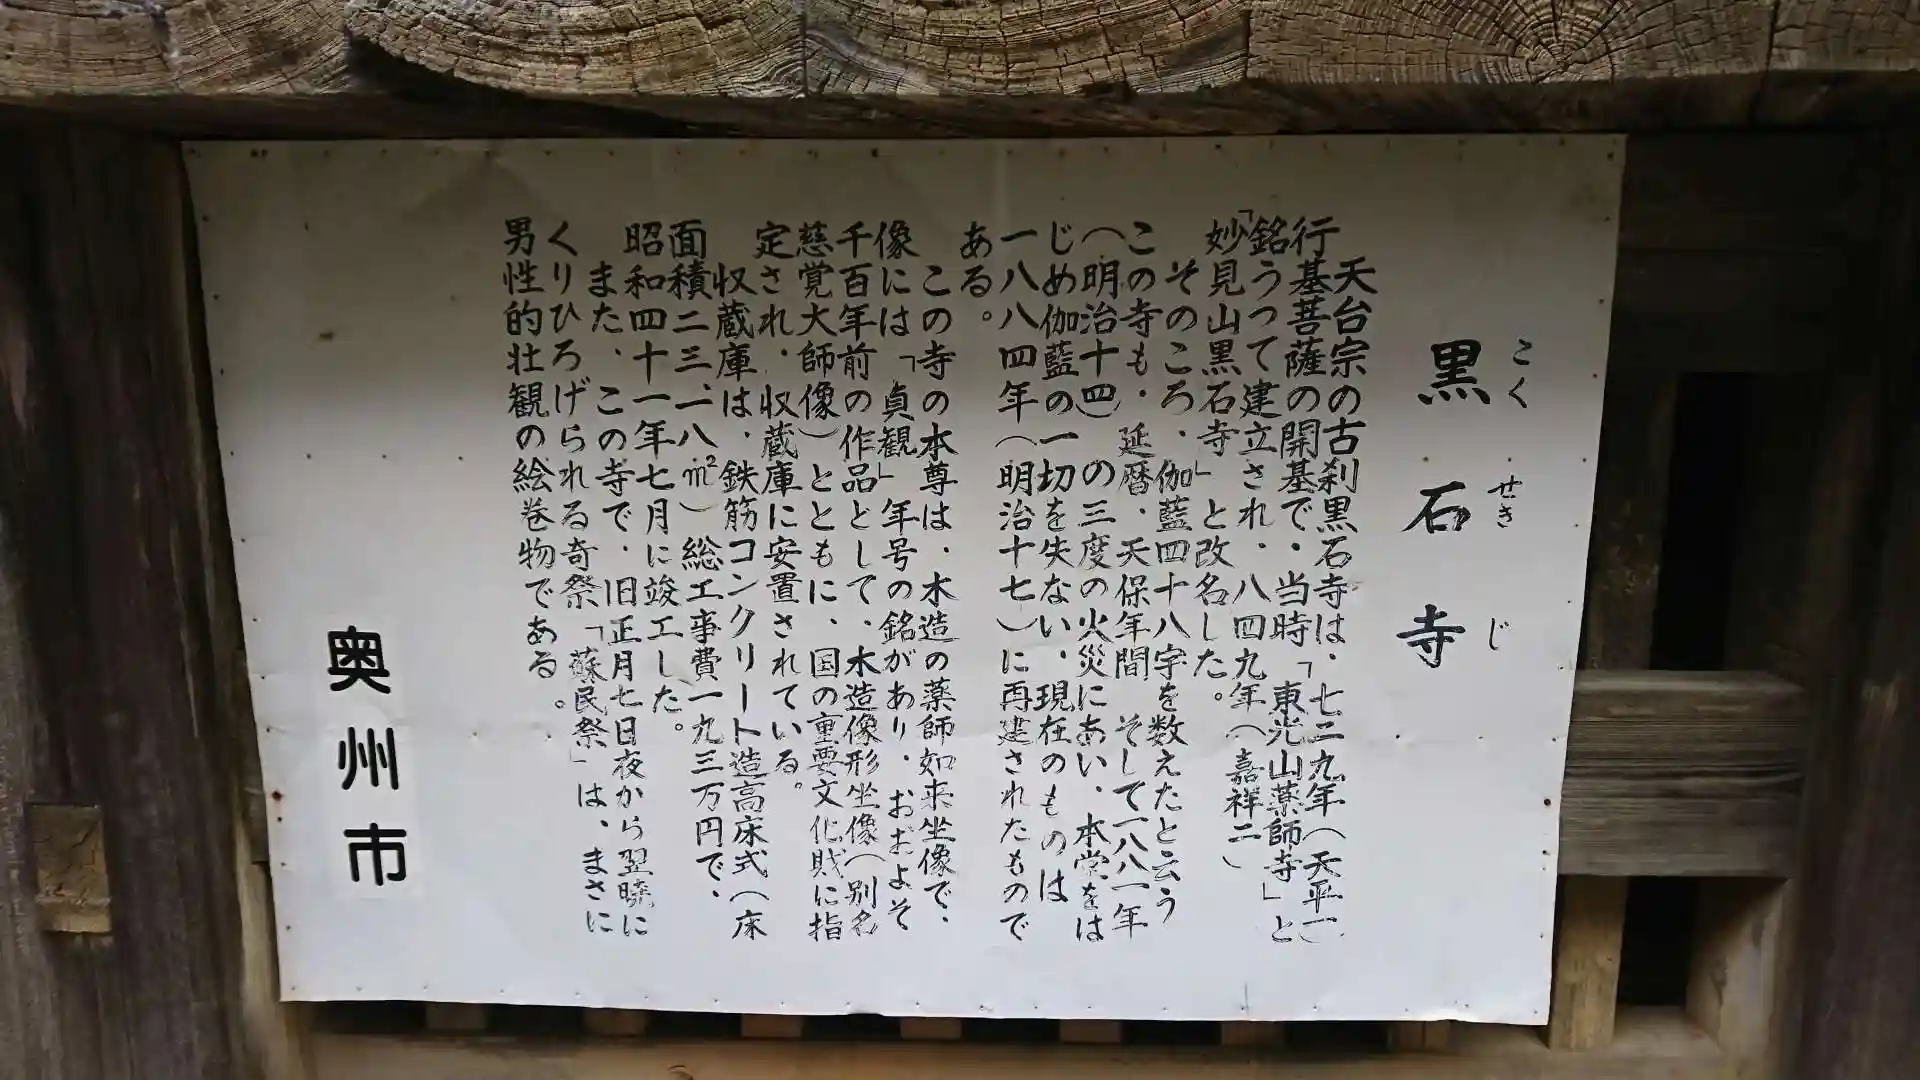 黒石寺
こくせきじ
天台宗の古刹黒石寺は、七二九年(天平一)
行基菩薩の開基で、当時「東光山薬師寺」と
銘うって建立され、八四九年(嘉祥二)
「妙見山黒石寺」と改名した。
そのころ、伽藍四十八宇を数えたと云う
この寺も、延暦、天保年間 そして一八八一年
(明治十四)の三度の火災にあい、本堂をは
じめ伽藍の一切を失ない、現在のものは
一八八四年(明治十七)に再建されたもので
ある。
この寺の本尊は、木造の薬師如来坐像で、
像には「貞観」年号の銘があり、おおよそ
千百年前の作品として、木造像形坐像(別名
慈覚大師像)とともに、国の重要文化財に指
定され、収蔵庫に安置されている。
収蔵庫は、鉄筋コンクリート造高床式(床
面積二三、二八㎡)総工事費一九三万円で、
昭和四十一年七月に竣工した。
また、この寺で、旧正月七日夜から翌暁に
くりひろげられる奇祭「蘇民祭」は、まさに
男性的壮観の絵巻物である。
奥州市